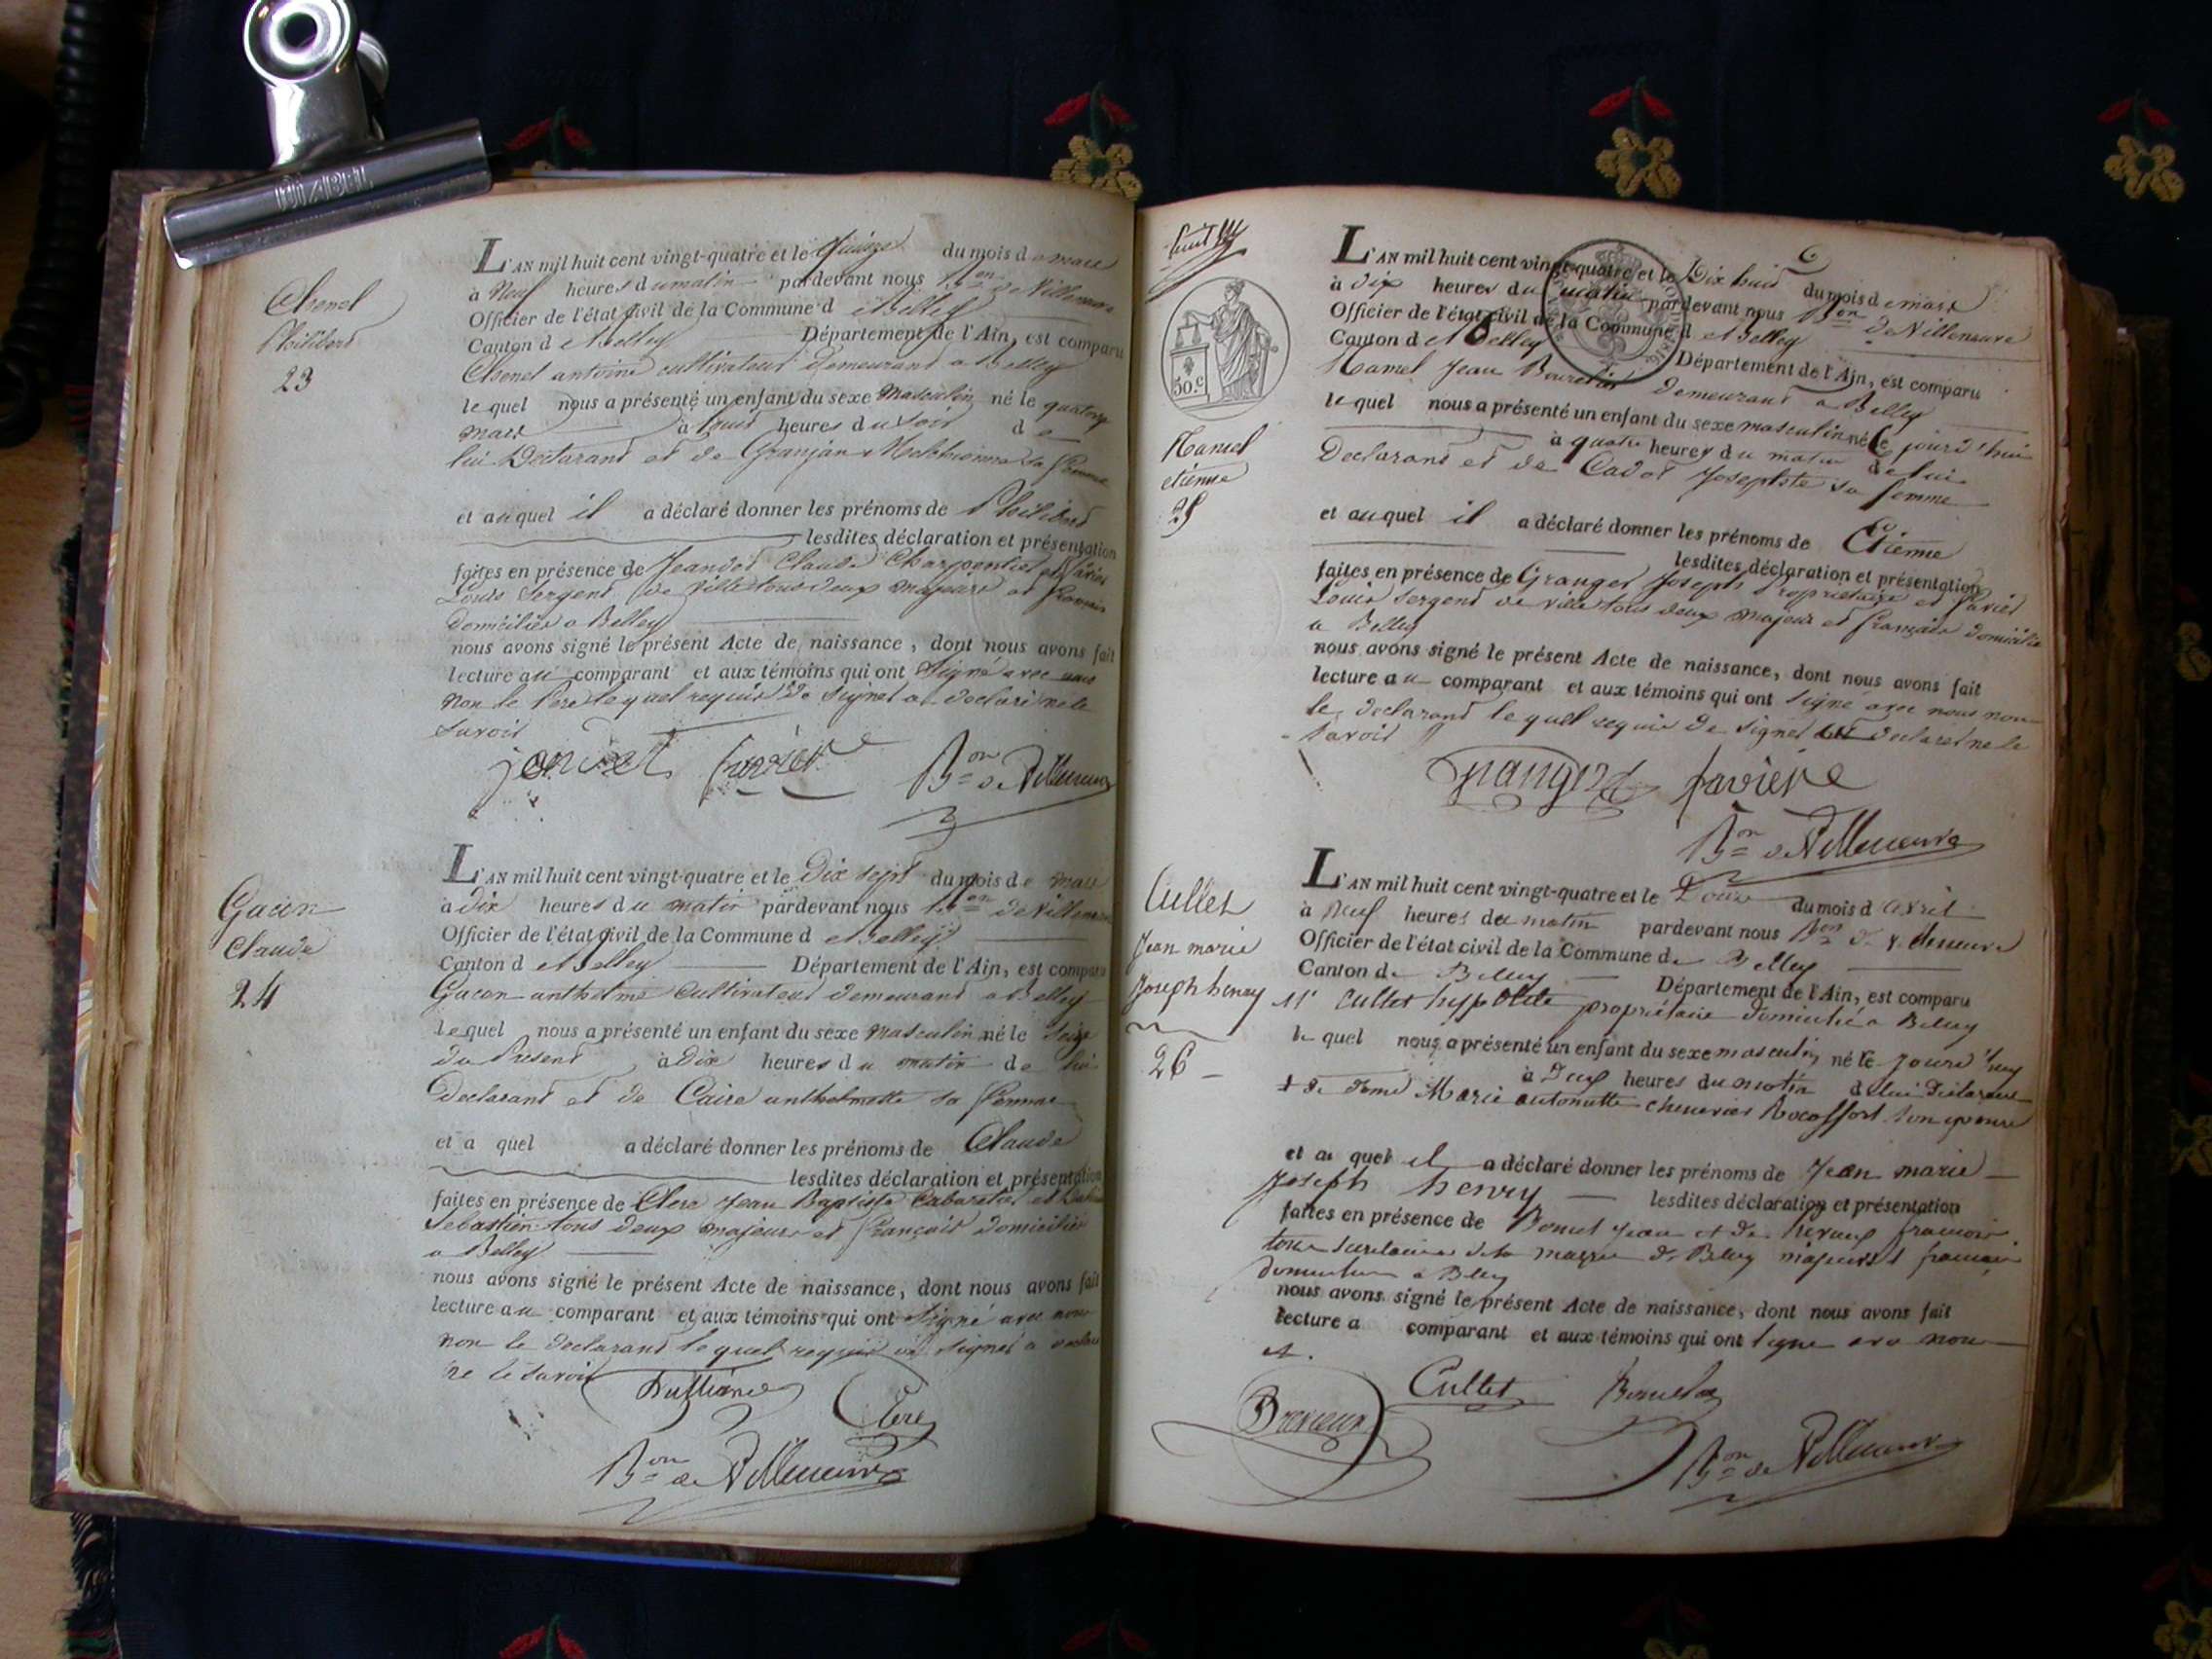 DIZABEL
Chenel
Philibert
23
L'AN mil huit cent vingt-quatre et le quinze du mois de mars
à Neuf heures du matin pardevant nous Bon de Villeneuve
Officier de l'état civil de la Commune d e Belley
Canton d e Belley Département de l'Ain, est comparu
Chenel antoine cultivateur demeurant a Belley
lequel nous a présenté un enfant du sexe Masculin né le quatorze
mars à huit heures du soir de
lui Declarant et de Granjan sa femme
et auquel il a déclaré donner les prénoms de Philibert
lesdites déclaration et présentation
faites en présence de Jeandet Claude Charpentier et favier
Louis Sergent de ville tous deux majeurs et francais
domiciliés a Belley
nous avons signé le présent Acte de naissance, dont nous avons fait
lecture au comparant et aux témoins qui ont signé avec nous
non le Pere lequel requis de signer a declaré ne le
savoir
favier
Bon de Villeneuve
Gacon
Claude
24
L'AN mil huit cent vingt-quatre et le Dix sept du mois de mars
à Dix heures du matin pardevant nous Bon de Villeneuve
Officier de l'état civil de la Commune d e Belley
Canton d e Belley Département de l'Ain, est comparu
Gacon anthelme Cultivateur demeurant a Belley
lequel nous a présenté un enfant du sexe masculin né le seize
du Present à Dix heures du matin de lui
Declarant et de Caire anthelmette sa femme
et a quel a déclaré donner les prénoms de Claude
lesdites déclaration et présentation
faites en présence de Clerc Jean Baptiste Cabaretier et
Sebastien tous deux majeurs et français domiciliés
a Belley
nous avons signé le présent Acte de naissance, dont nous avons fait
lecture au comparant et aux témoins qui ont signé avec nous
non le declarant lequel requis de signer a declaré
ne le savoir
Clerc
Bon de Villeneuve
6
50 c.
1816
Hamel
etienne
25
L'AN mil huit cent vingt-quatre et le Dix huit du mois de mars
à dix heures du matin pardevant nous Bon de Villeneuve
Officier de l'état civil de la Commune d e Belley
Canton d e Belley Département de l'Ain, est comparu
Hamel Jean demeurant a Belley
lequel nous a présenté un enfant du sexe masculin né ce jourd'hui
à quatre heures du matin de lui
Declarant et de Cadot Josephte sa femme
et auquel il a déclaré donner les prénoms de Etienne
lesdites déclaration et présentation
faites en présence de Granger Joseph Proprietaire et favier
Louis Sergent de ville tous deux majeurs et français domiciliés
a Belley
nous avons signé le présent Acte de naissance, dont nous avons fait
lecture au comparant et aux témoins qui ont signé avec nous non
le declarant lequel requis de signer declaré ne le
savoir
Granger
faviere
Bon de Villeneuve
Cullet
Jean marie
Joseph henry
26
L'AN mil huit cent vingt-quatre et le Douze du mois d avril
à Neuf heures du matin pardevant nous Bon de Villeneuve
Officier de l'état civil de la Commune de Belley
Canton de Belley Département de l'Ain, est comparu
Mr Cullet hyppolite propriétaire domicilié a Belley
lequel nous a présenté un enfant du sexe masculin, né ce jourd'huy
à Deux heures du matin de lui Déclarant
& de dame Marie antoinette chenevier Rocoffort son epouse
et au quel il a déclaré donner les prénoms de Jean marie
Joseph henry lesdites déclaration et présentation
faites en présence de Bonnet Jean et françois
tous secretaires de la mairie de Belley majeurs & francais
domicilies a Belley
nous avons signé le présent Acte de naissance, dont nous avons fait
lecture a comparant et aux témoins qui ont signé avec nous
Cullet
Bon de Villeneuve